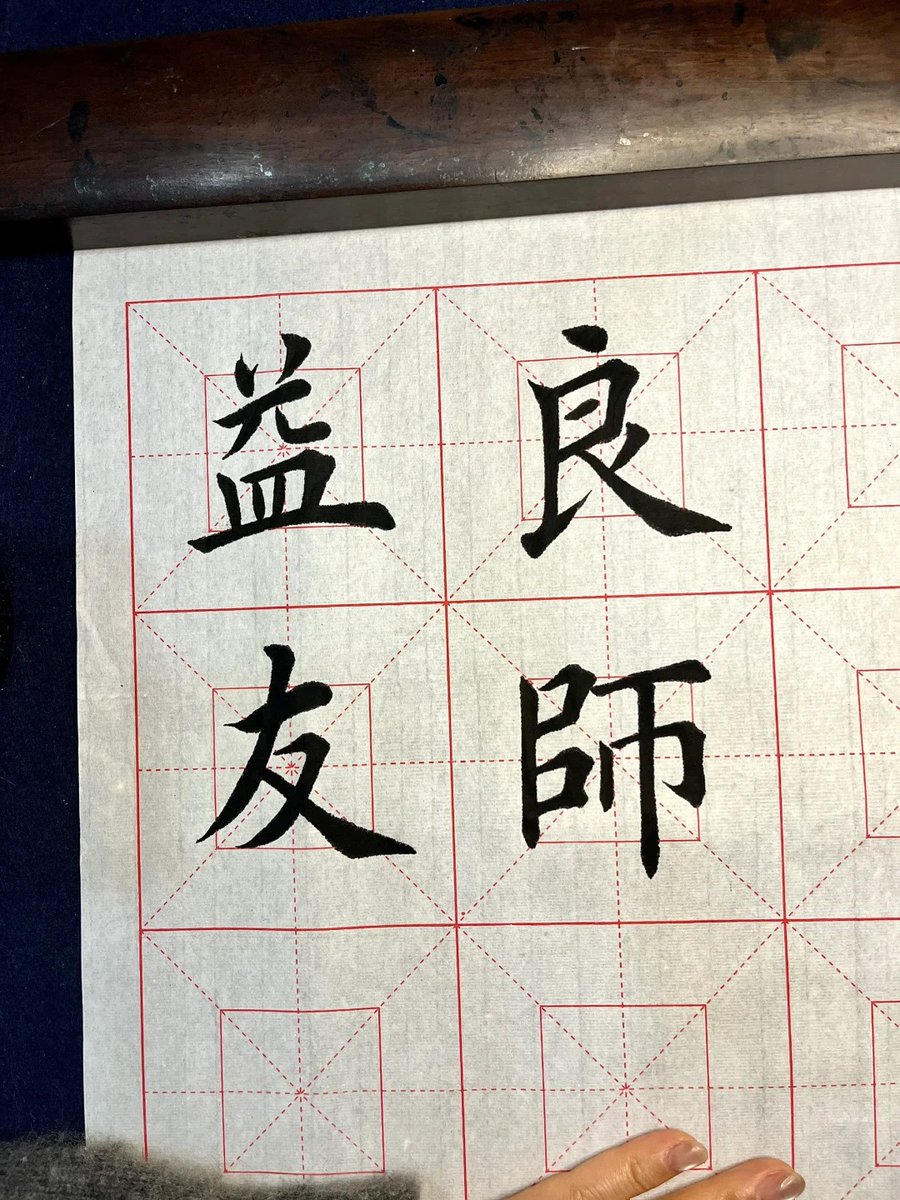 良師
益友